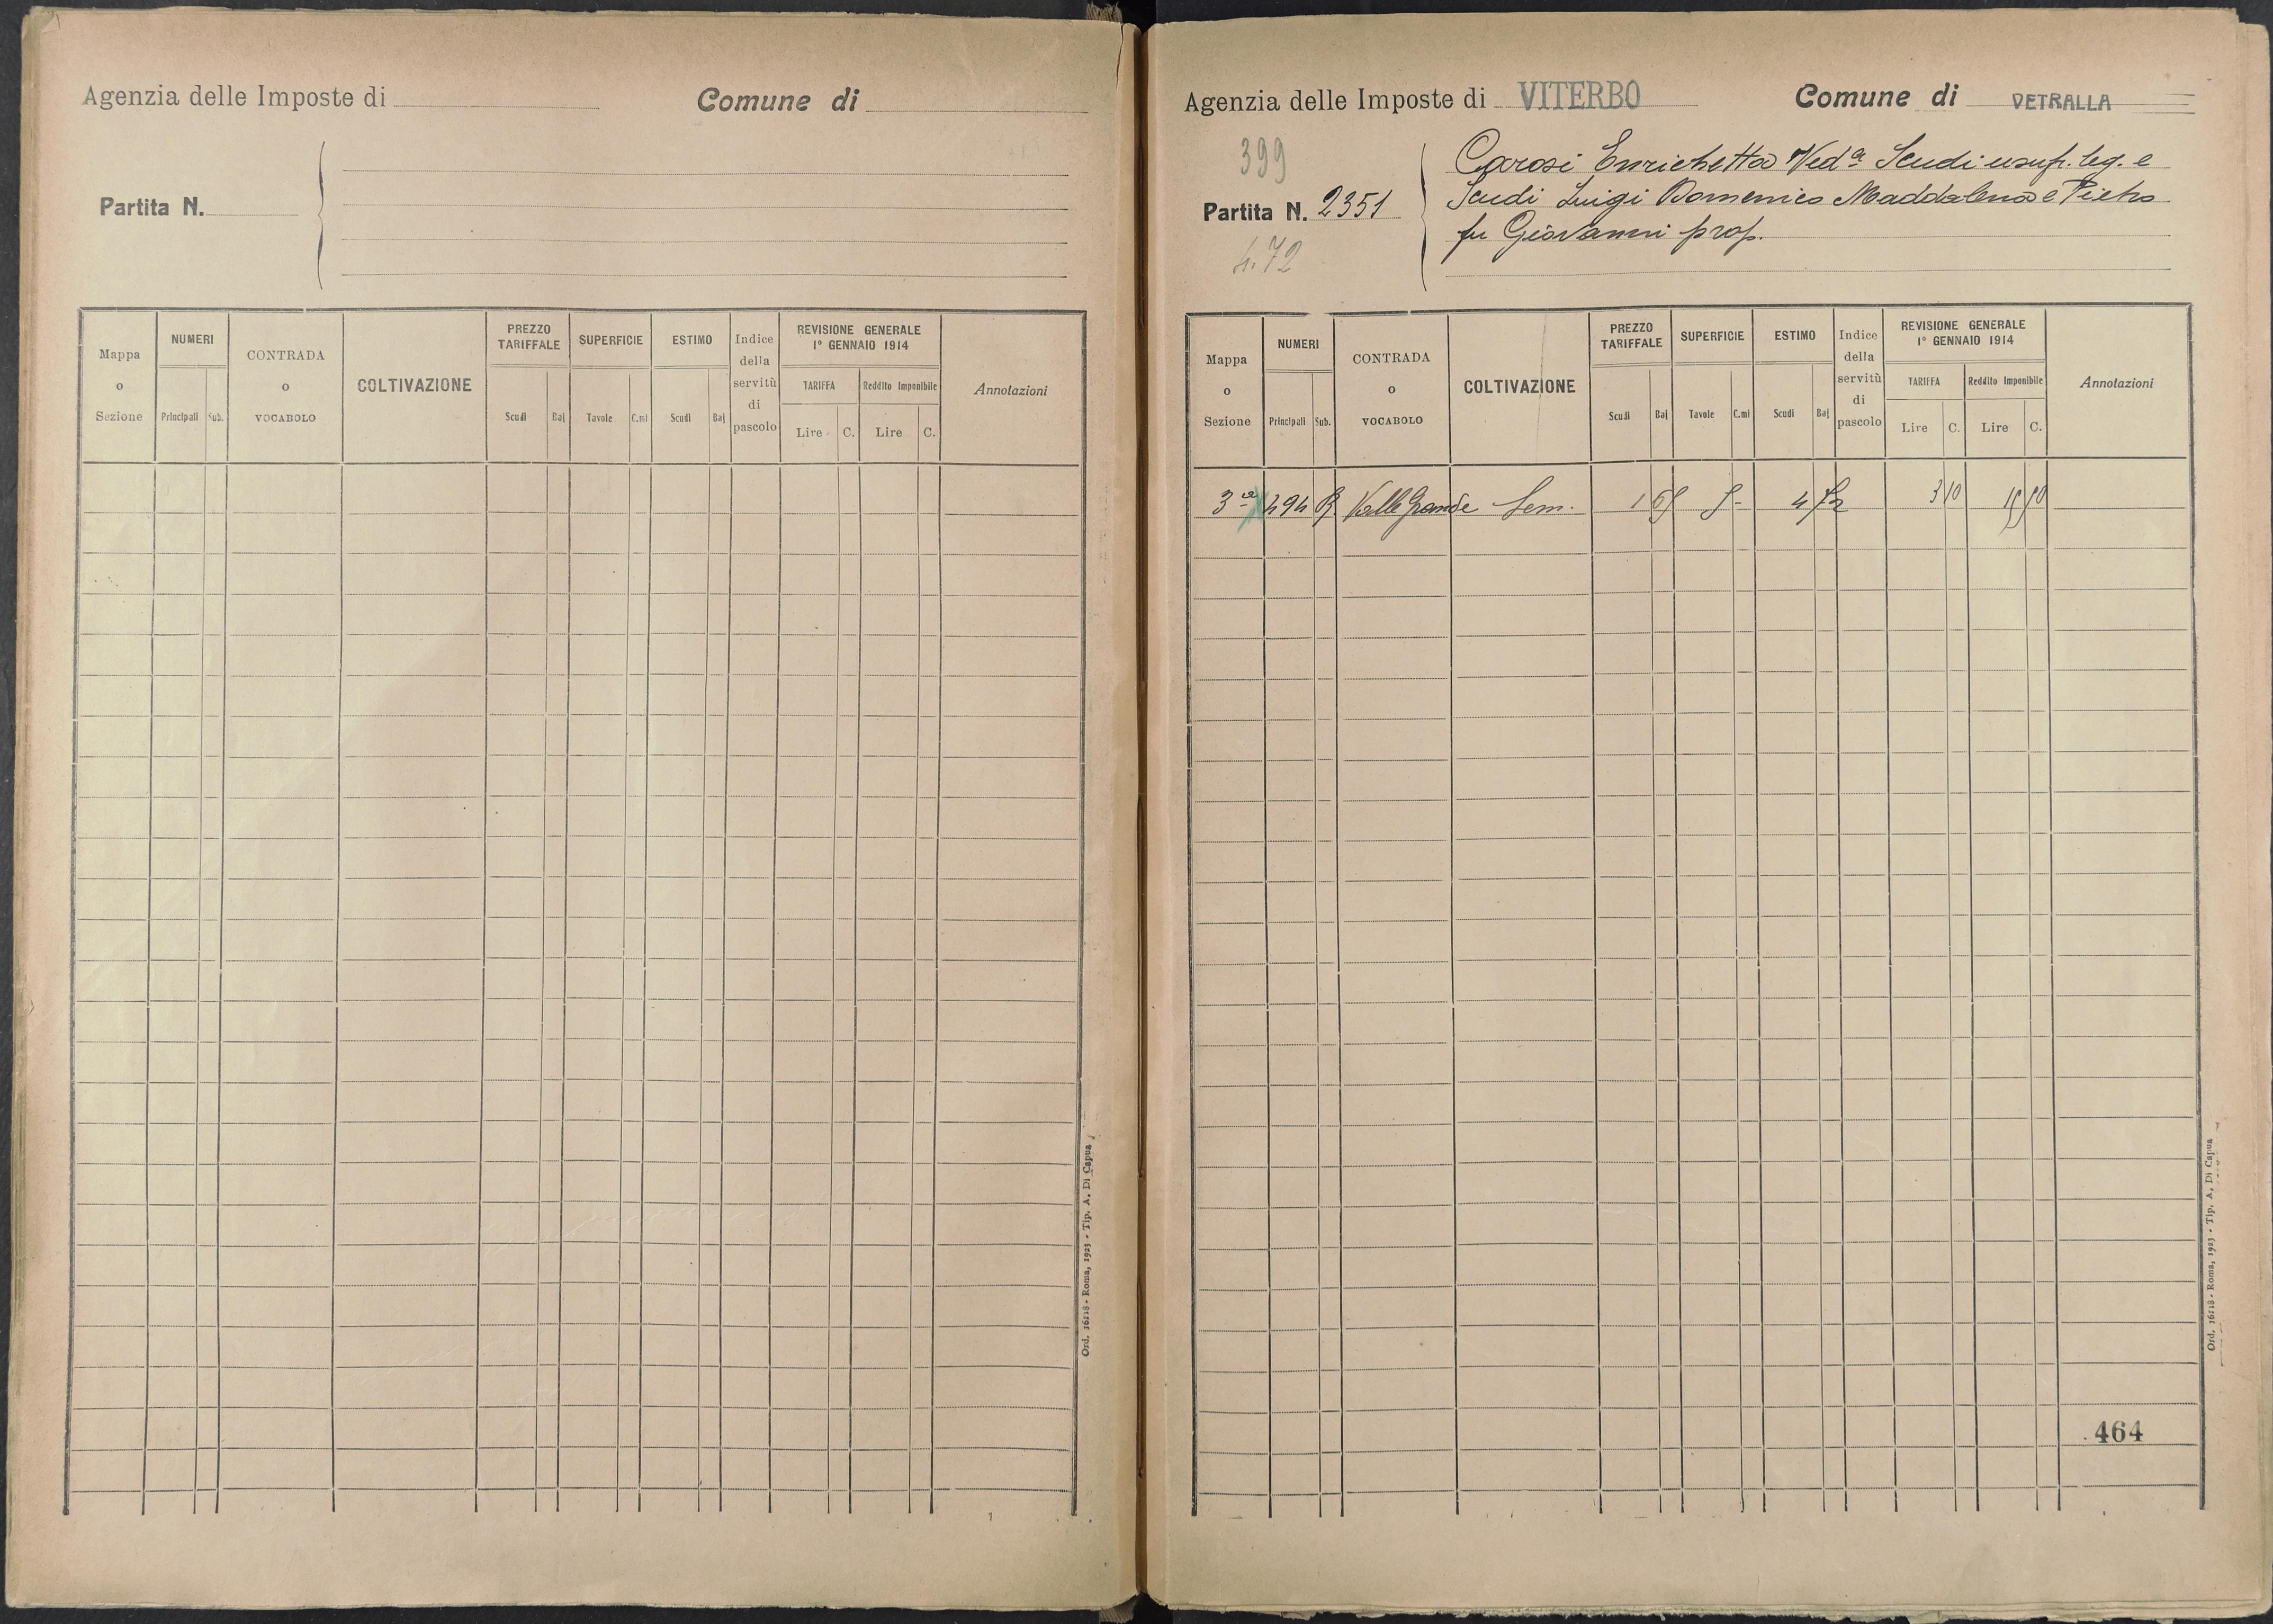 Agenzia delle Imposte di
Comune di
Partita N.
Mappa o Sezione
NUMERI
Principali Sub.
CONTRADA o VOCABOLO
COLTIVAZIONE
PREZZO TARIFFALE
Scudi Baj
SUPERFICIE
Tavole C.mi
ESTIMO
Scudi Baj
Indice della servitù di pascolo
REVISIONE GENERALE
1° GENNAIO 1914
TARIFFA
Lire C.
Reddito Imponibile
Lire C.
Annotazioni
Ord. 16218 - Roma, 1923 - Tip. A. Di Capua
Agenzia delle Imposte di VITERBO
Comune di VETRALLA
399
Partita N. 2351
4.72
Carosi Enrichetta Ved.a Scudi usuf. leg. e
Scudi Luigi Domenico Maddalena e Pietro
fu Giovanni prop.
Mappa o Sezione
NUMERI
Principali Sub.
CONTRADA o VOCABOLO
COLTIVAZIONE
PREZZO TARIFFALE
Scudi Baj
SUPERFICIE
Tavole C.mi
ESTIMO
Scudi Baj
Indice della servitù di pascolo
REVISIONE GENERALE
1° GENNAIO 1914
TARIFFA
Lire C.
Reddito Imponibile
Lire C.
Annotazioni
3a 494 Valle Grande Sem. 3 10
464
Ord. 16218 - Roma, 1923 - Tip. A. Di Capua